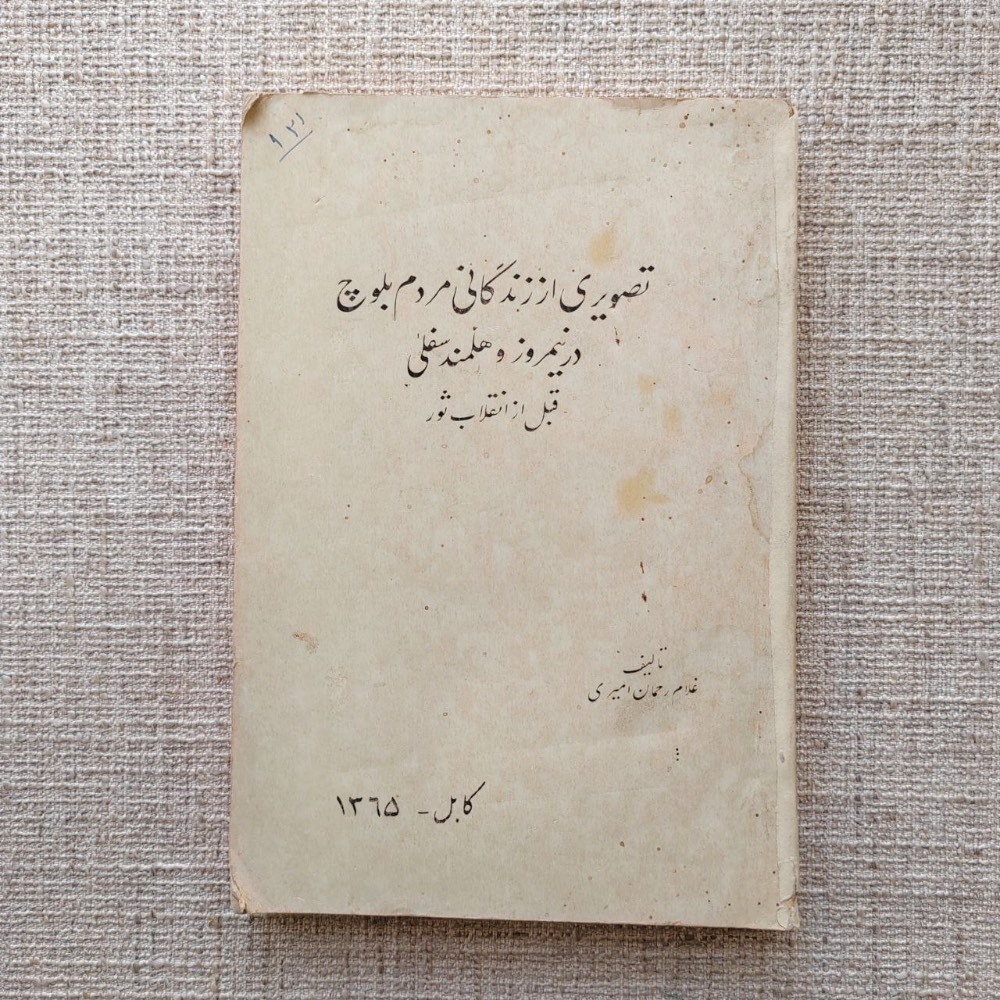 تصویری از زندگانی مردم بلوچ
در نیمروز و هلمند سفلیٰ
قبل از انقلاب ثور
تالیف
غلام رحمان امیری
کابل - ۱۳۶۵